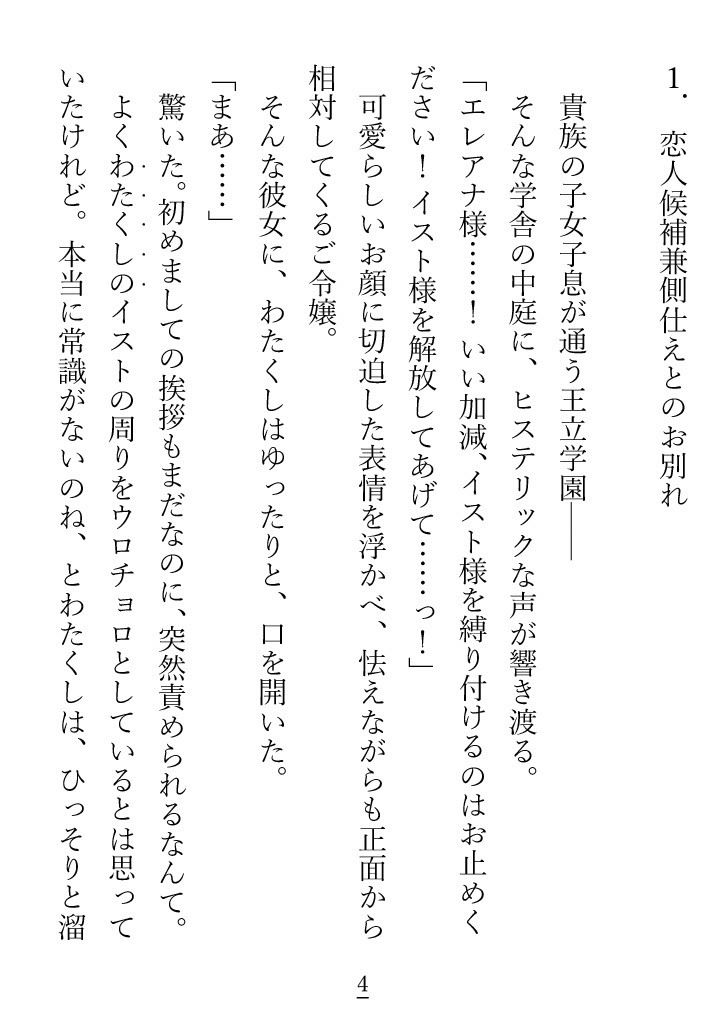 1．恋人候補兼側仕えとのお別れ
貴族の子女子息が通う王立学園――
そんな学舎の中庭に、ヒステリックな声が響き渡る。
「エレアナ様……！いい加減、イスト様を縛り付けるのはお止めく
ださい！イスト様を解放してあげて……っ！」
可愛らしいお顔に切迫した表情を浮かべ、怯えながらも正面から
相対してくるご令嬢。
そんな彼女に、わたくしはゆったりと、口を開いた。
「まあ……」
驚いた。初めましての挨拶もまだなのに、突然責められるなんて。
よくわたくしのイストの周りをウロチョロとしているとは思って
いたけれど。本当に常識がないのね、とわたくしは、ひっそりと溜
4